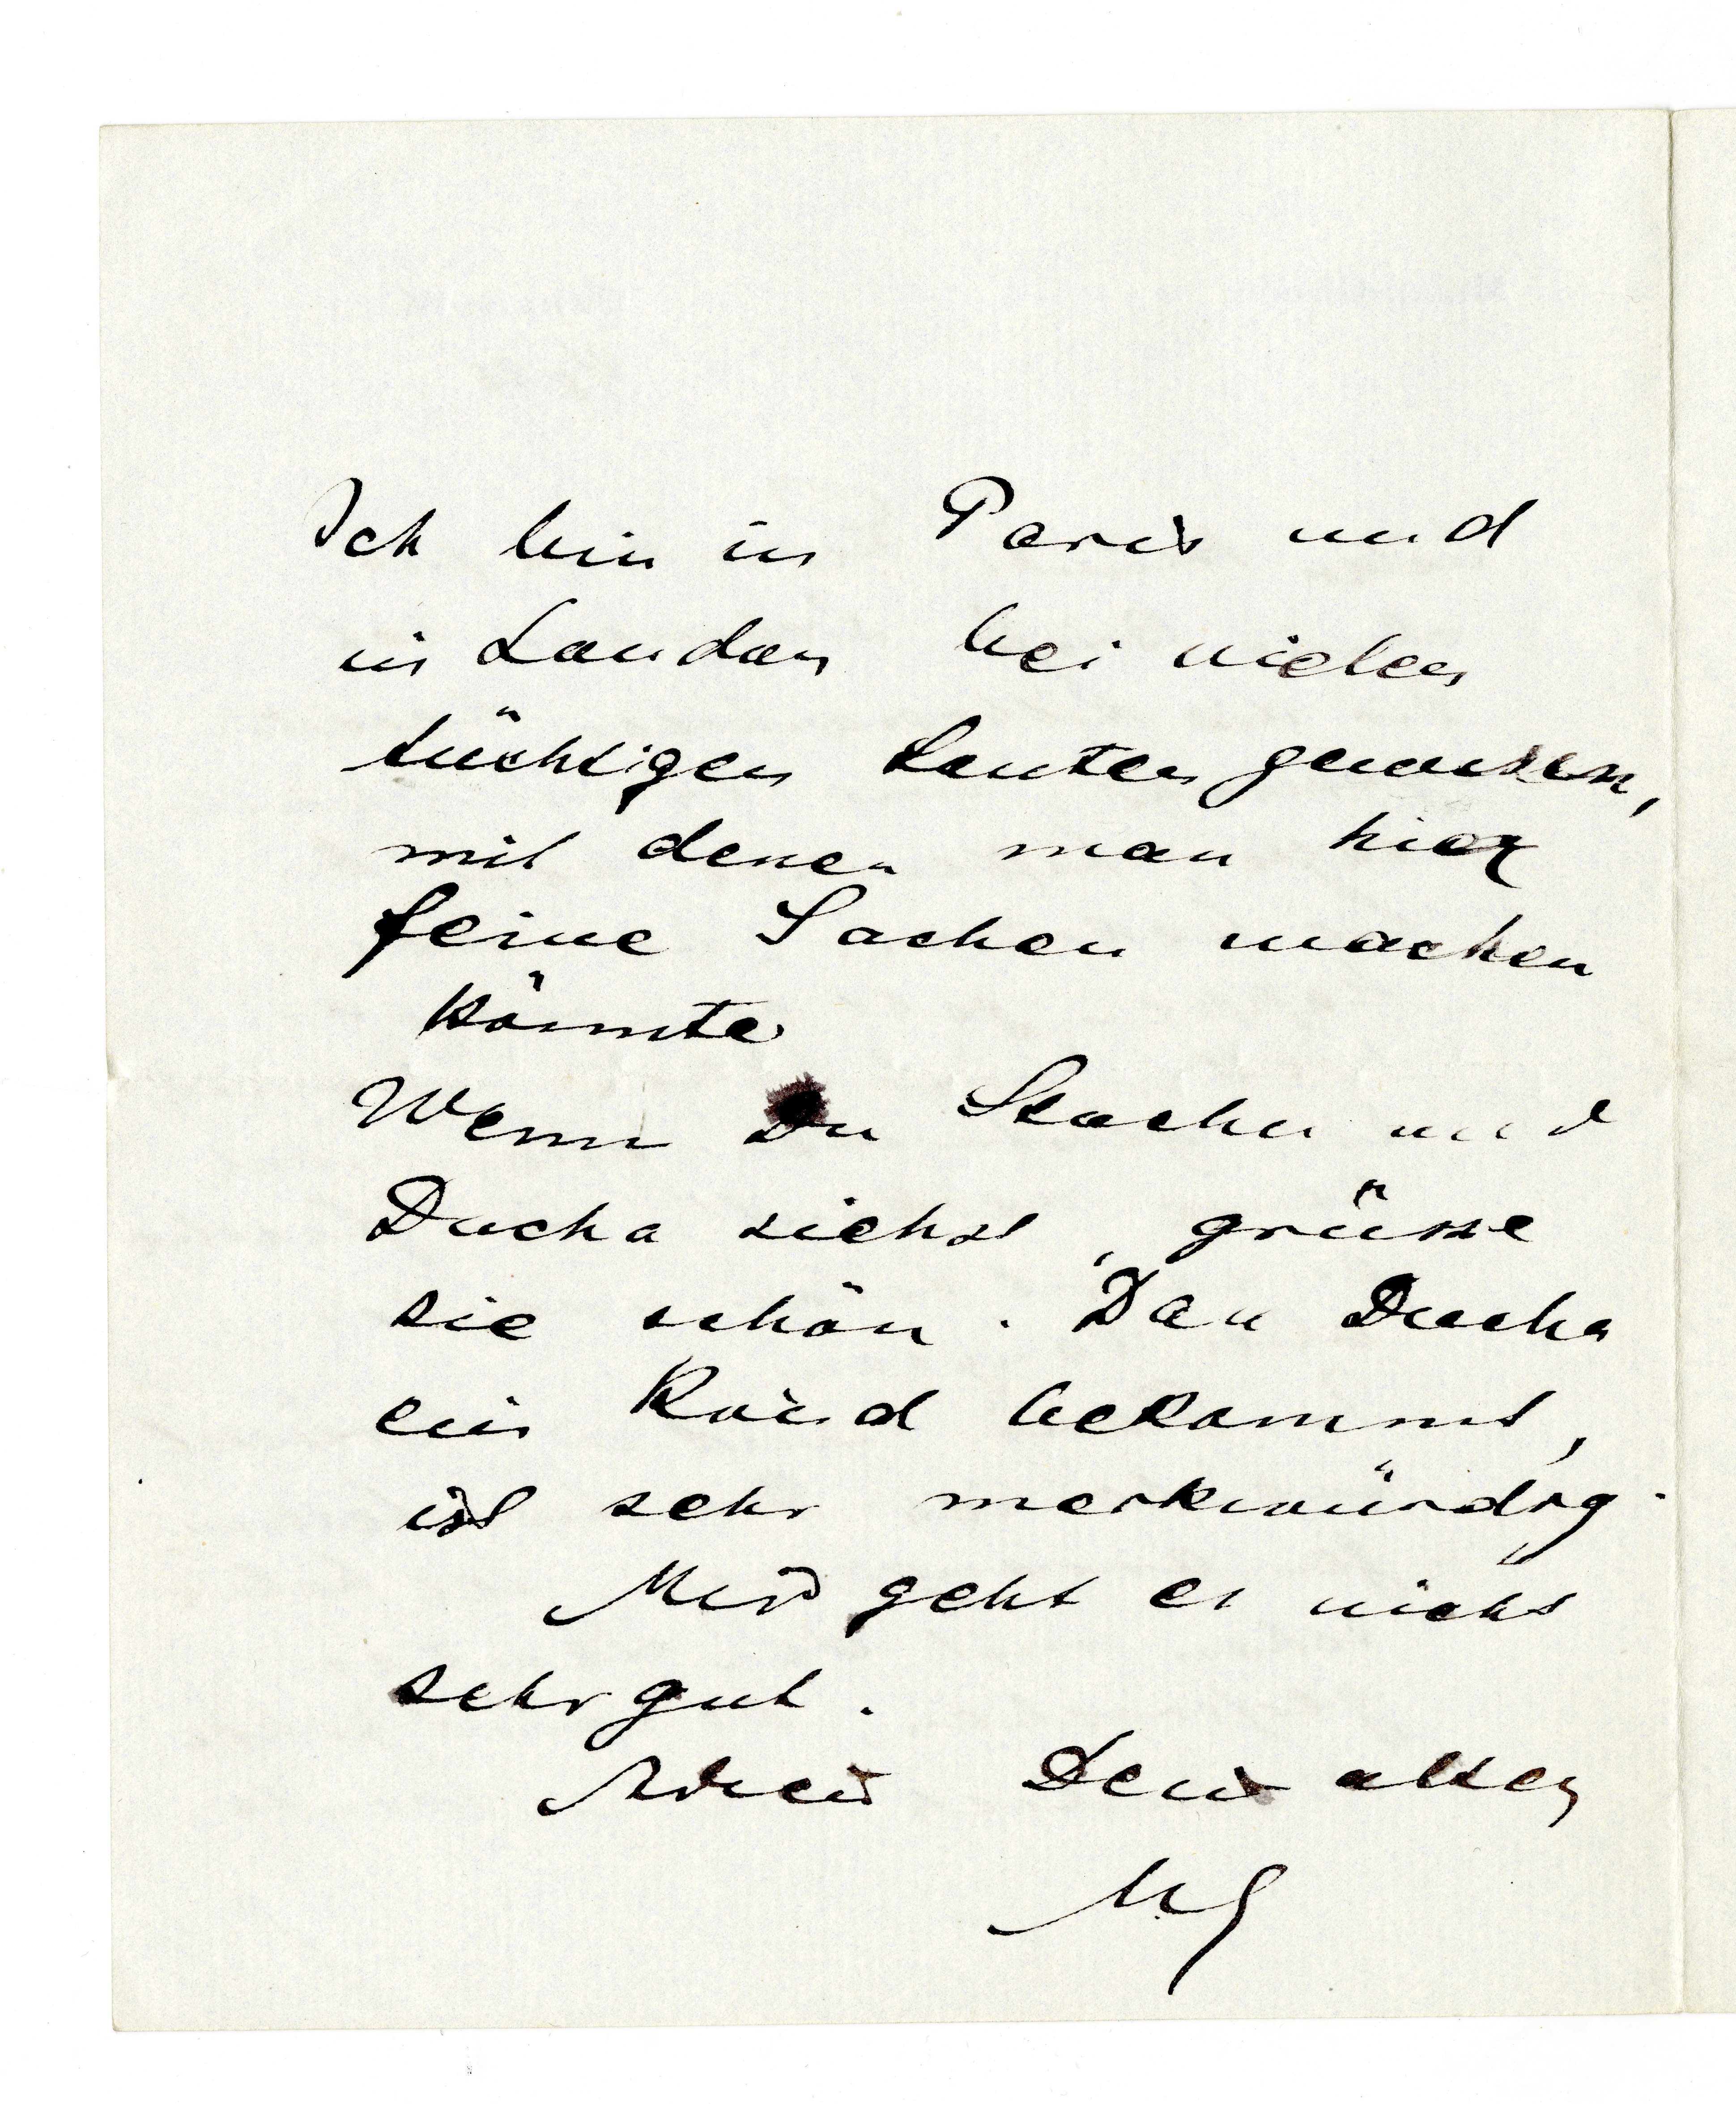 Ich bin in Paris und
in London bei vielen
tüchtigen Leuten gewesen,
mit denen man hier
feine Sachen machen
könnte
Wenn Du Stacha und
Ducha siehst, grüsse
sie schön. Dan Ducha
ein Kind bekommt,
ist sehr merkwürdig.
Mir geht es nicht
sehr gut.
Adieu Dein alter